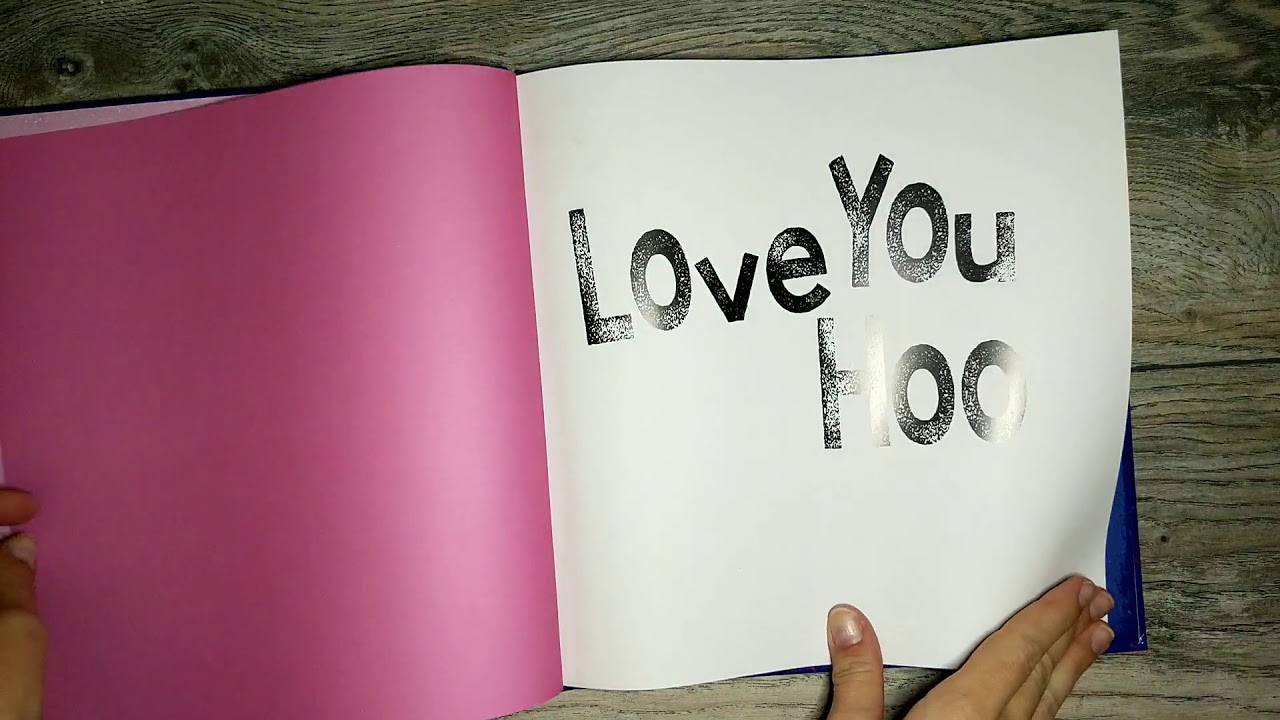 Love You
Hoo